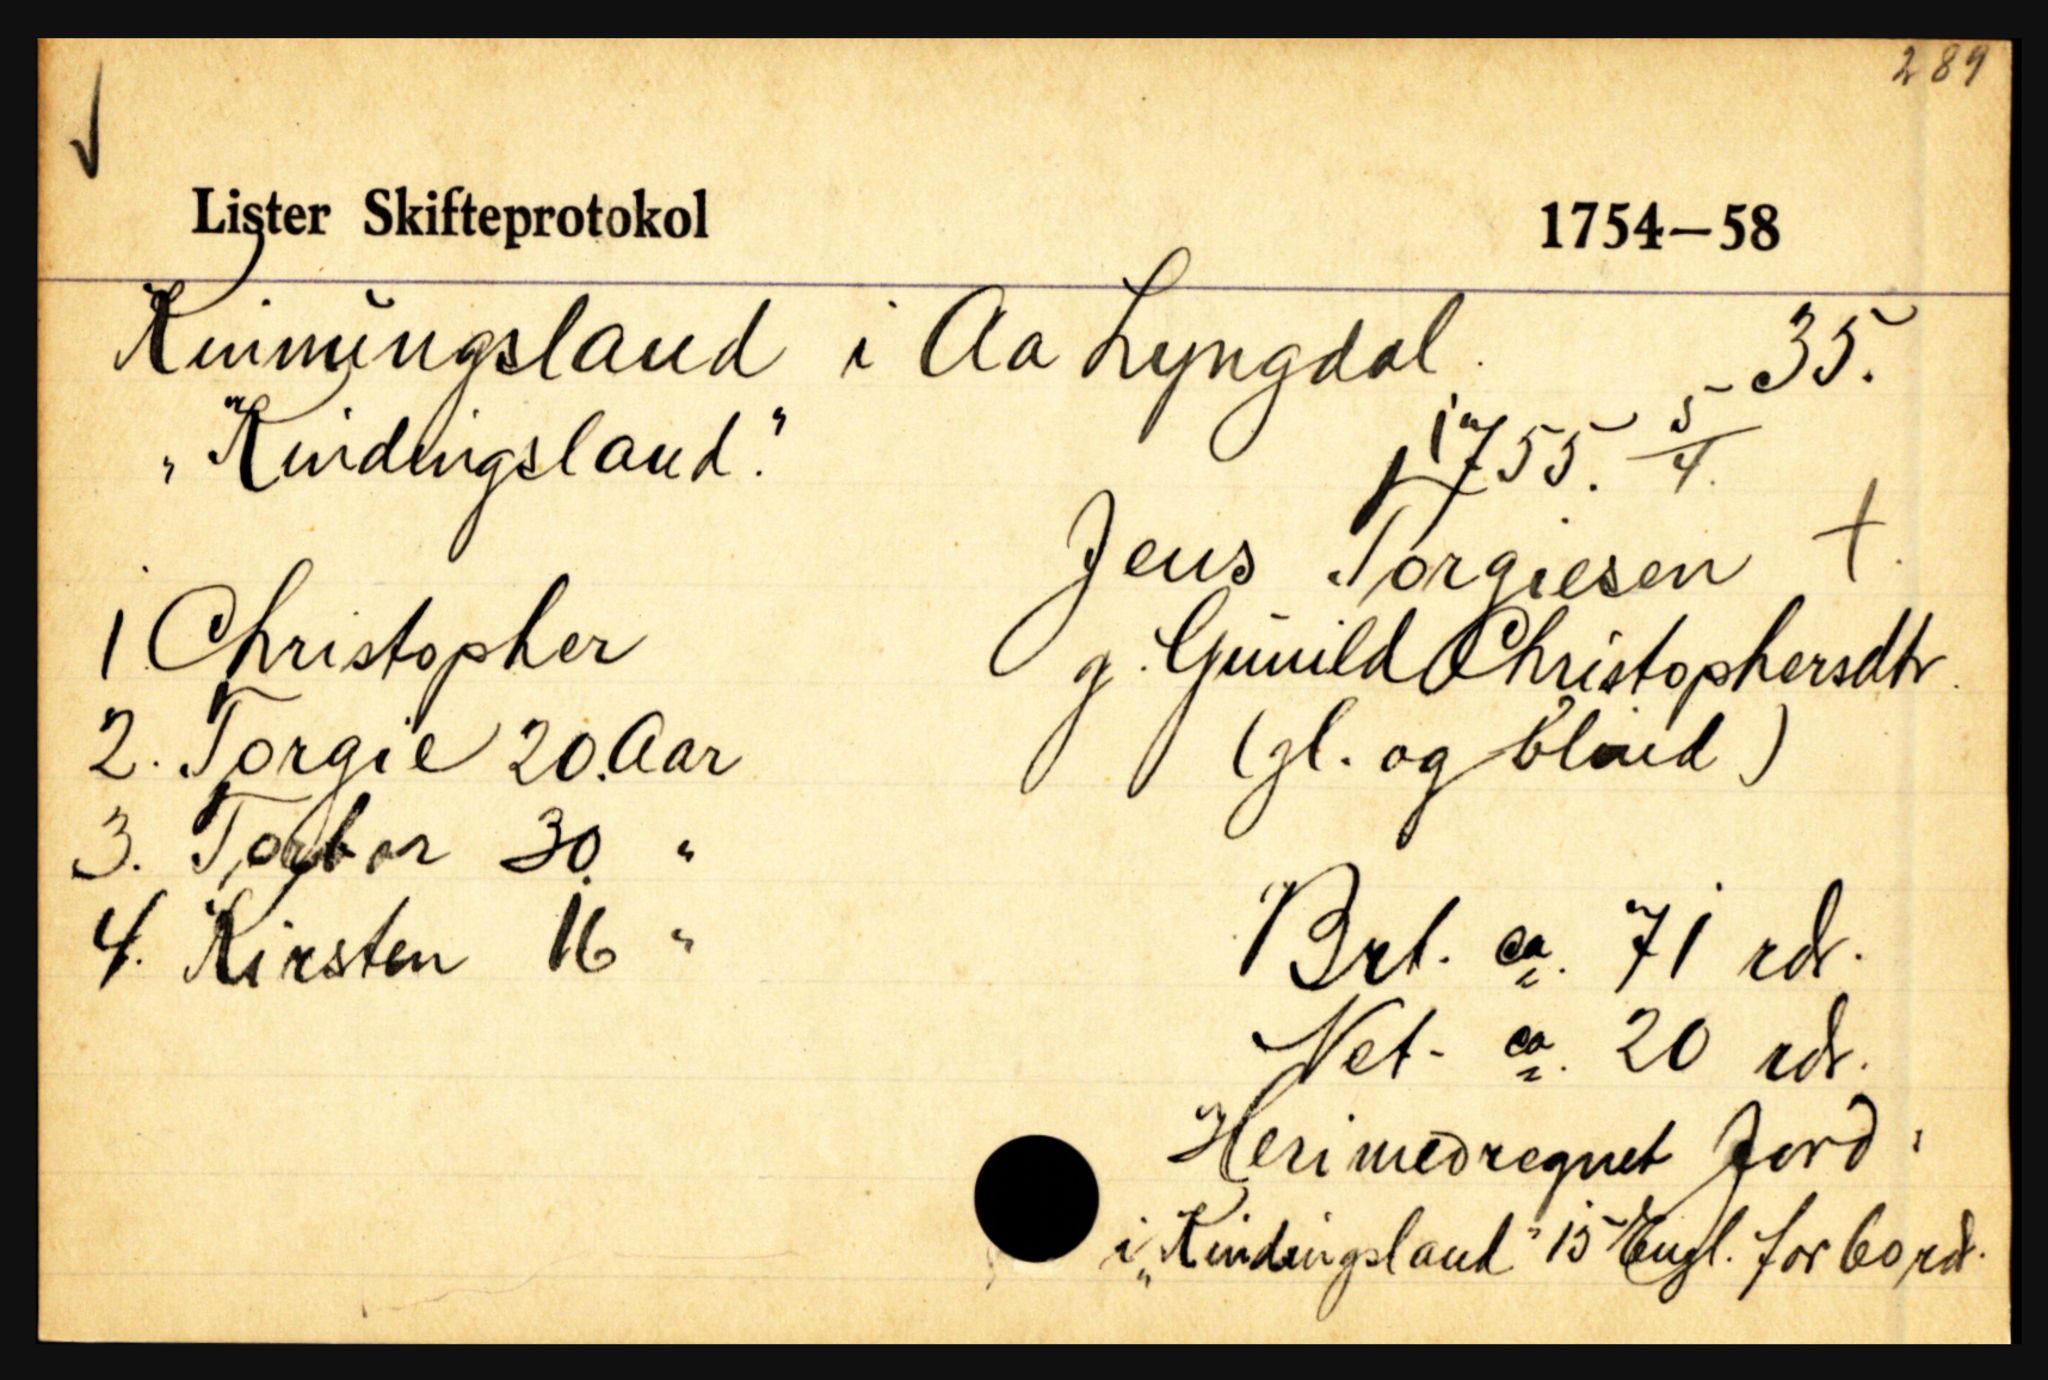 289
Lister Skifteprotokol 1754—58
Kinnungsland i Aa Lyngdal. 35.
„Kindingsland."
1755. 5/4.
Jens Torgiesen +.
1 Christopher
g. Gunild Christophersdtr.
2. Torgie 20. Aar
(gl. og blind)
3. Torbor 30. "
4. Kirsten 16 "
Brt. ca. 71 rdr.
Net. ca. 20 rdr.
Heri medregnet Jord
i „Kindingsland" 15 Engl. for 60 rdr.